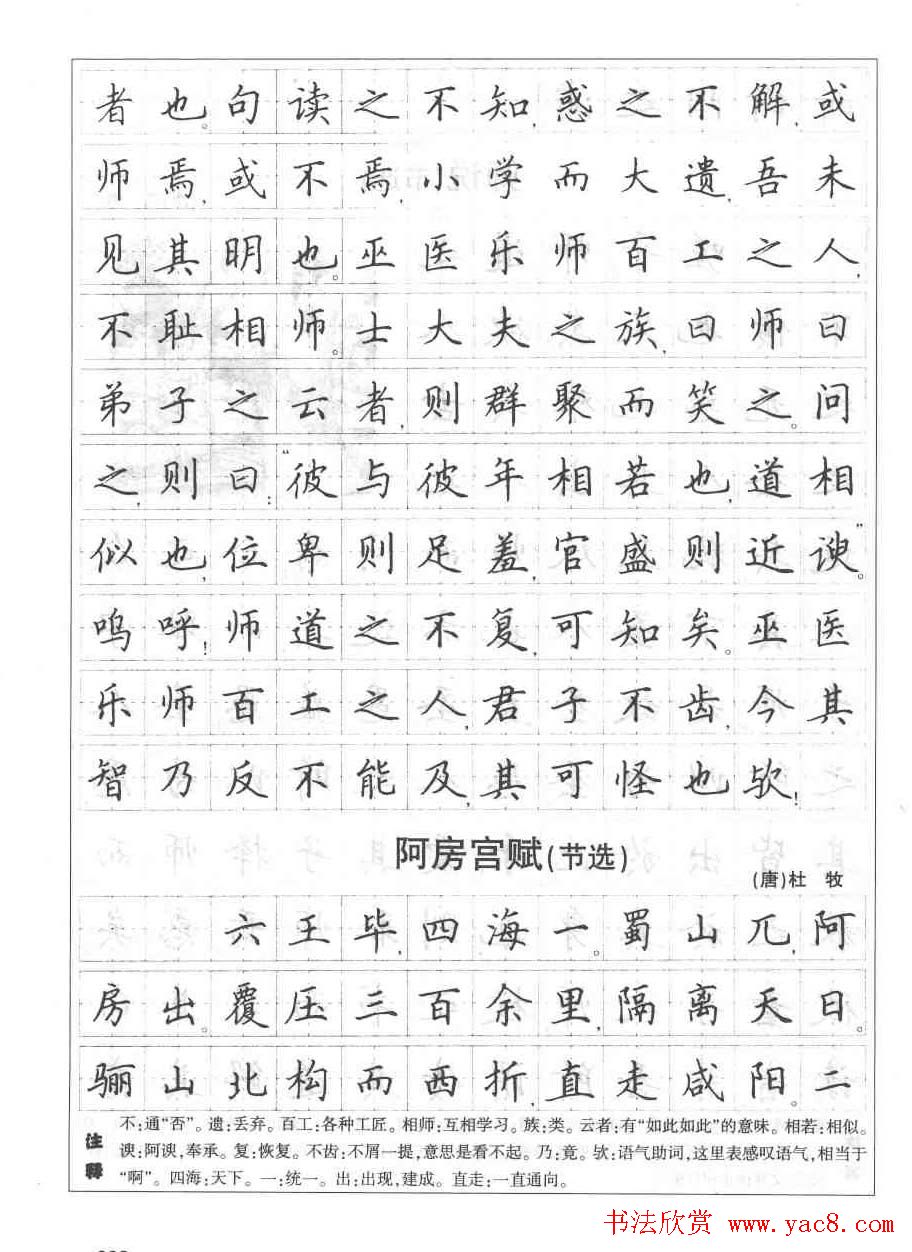 者也。句读之不知,惑之不解,或
师焉,或不焉,小学而大遗,吾未
见其明也。巫医乐师百工之人,
不耻相师。士大夫之族,曰师曰
弟子云者,则群聚而笑之。问
之,则曰:“彼与彼年相若也,道相
似也,位卑则足羞,官盛则近谀。”
呜呼!师道之不复,可知矣。巫医
乐师百工之人,君子不齿,今其
智乃反不能及,其可怪也欤!
阿房宫赋(节选)
(唐)杜 牧
六王毕,四海一。蜀山兀,阿
房出。覆压三百余里,隔离天日。
骊山北构而西折,直走咸阳。二
注释
不:通“否”。遗:丢弃。百工:各种工匠。相师:互相学习。族:类。云者:有“如此如此”的意味。相若:相似。
谀:阿谀,奉承。复:恢复。不齿:不屑一提,意思是看不起。乃:竟。欤:语气助词,这里表感叹语气,相当于
“啊”。四海:天下。一:统一。出:出现,建成。直走:一直通向。
书法欣赏 www.yac8.com